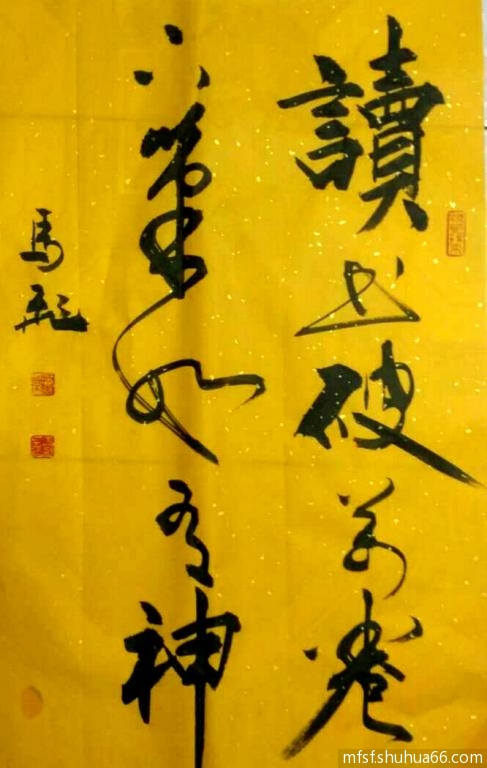 讀书破萬卷
下筆如有神
馬
mfsf.shuhua66.com